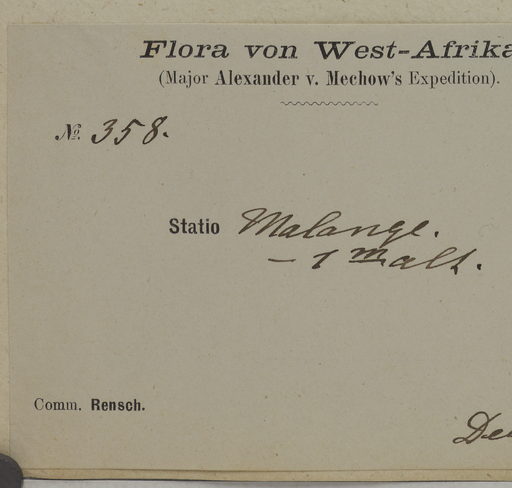 Flora von West-Afrika
(Major Alexander v. Mechow's Expedition).
No. 358.
Statio Malange.
– 1 m alt.
Comm. Rensch.